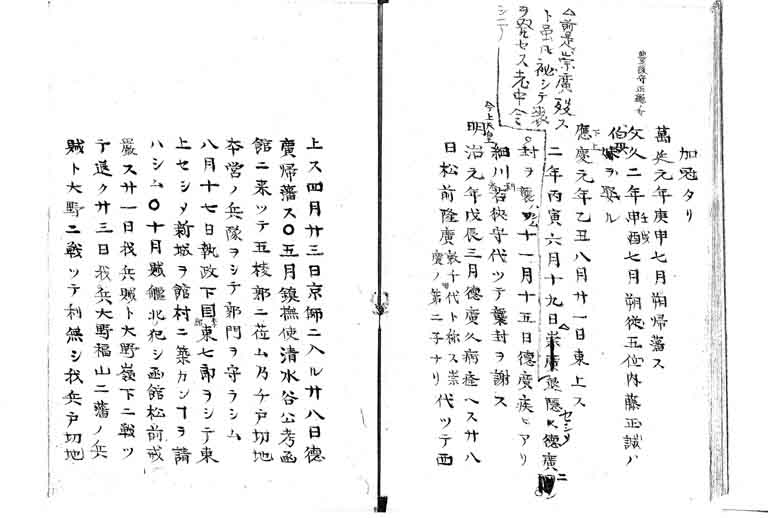 加冠タリ
萬延元年庚申七月朔帰藩ス
文久二年壬戌七月朔従五位内藤正誠ノ
伯母ヲ娶ル
慶應元年乙丑八月廿一日東上ス
二年丙寅六月十九日崇廣退隠ス徳廣
封ヲ襲十一月十五日徳廣疾アリ
細川若狭守代ツテ襲封ヲ謝ス
今上天皇
明治元年戊辰三月徳廣久病癒ヘス廿八
日松前隆廣敦千代ト称ス崇廣ノ第二子ナリ代ツテ西
△前是崇廣歿ス
ト虽ルモ秘シテ喪
ヲ発セス老中
上ス四月廿三日京師ニ入ル廿八日徳
廣帰藩ス〇五月鎮撫使清水谷公考函
館ニ来ツテ五稜郭ニ莅ム乃チ戸切地
本営ノ兵隊ヲシテ郭門ヲ守ラシム
八月十七日執政下国東七郎ヲシテ東
上セシメ新城ヲ館村ニ築カンヿヲ請
ハシム〇十月賊艦北ヲ犯シ函館松前戒
厳ス廿一日我兵賊ト大野嶺下ニ戦ツ
テ退ク廿三日我兵大野福山二藩ノ兵
賊ト大野ニ戦ツテ利無シ我兵戸切地